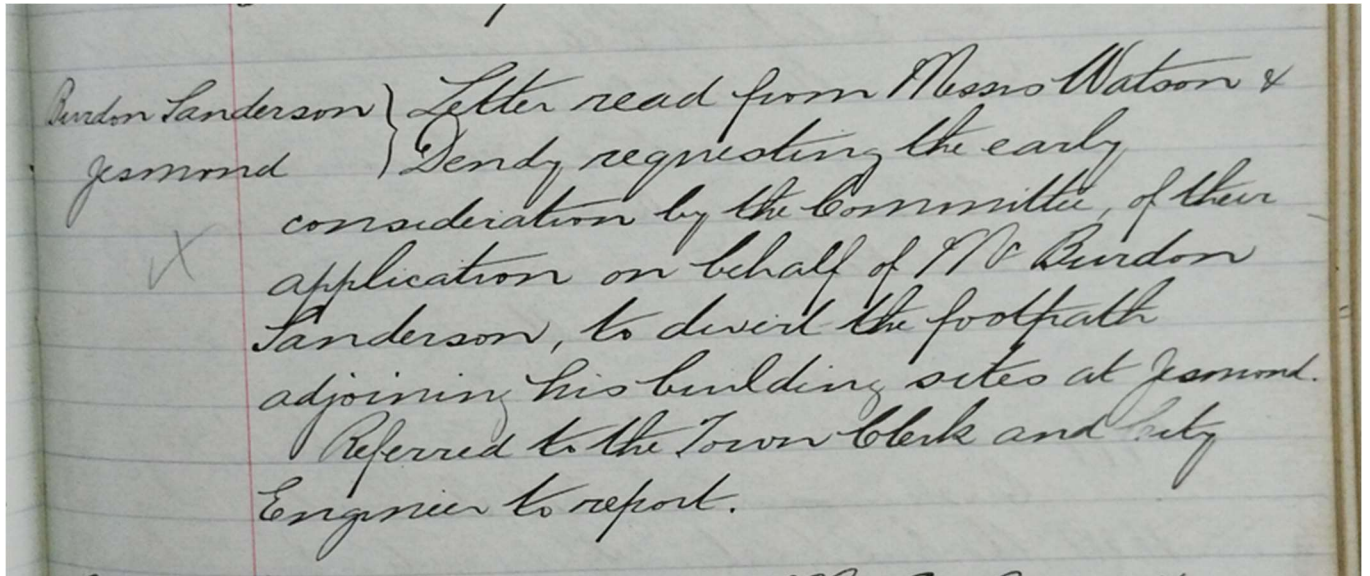 Burdon Sanderson } Letter read from Messrs Watson &
Jesmond } Dendy requesting the early
consideration by the Committee, of their
application on behalf of Mr Burdon
Sanderson, to divert the footpath
adjoining his building sites at Jesmond.
Referred to the Town Clerk and City
Engineer to report.